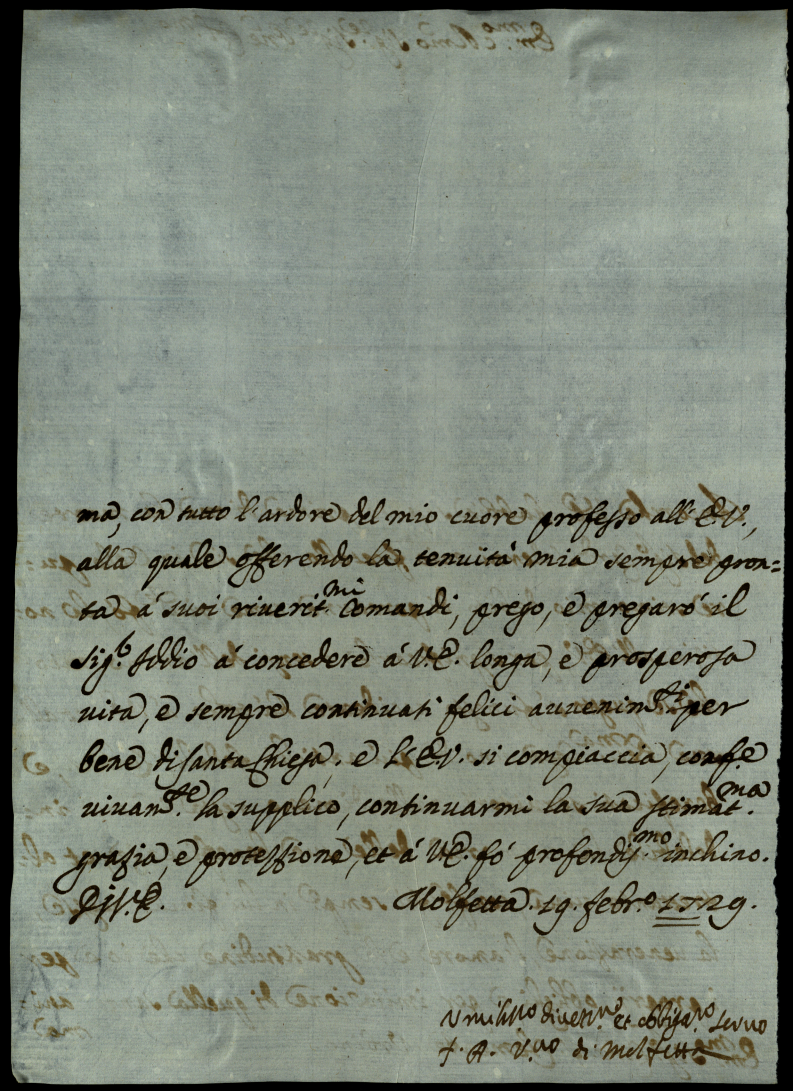 ma, con tutto l'ardore del mio cuore professo all'E.V.,
alla quale offerendo la tenuità mia sempre pron=
ta á suoi riverit.mi Comandi, prego, e pregarò il
Sig.r Iddio á concedere á V.E. longa, e prosperosa
vita, e sempre continuati felici avvenim.ti per
bene di Santa Chiesa; e l'E.V. si compiaccia,
vivam.te la supplico, continuarmi la sua stimat.ma
grazia, e protezzione, et á V.E. fó profondis.mo inchino.
Di V.E. Molfetta. 19. febr.o 1729.
Umiliss.mo et obligat.mo servo
F. A. V.vo di Molfetta